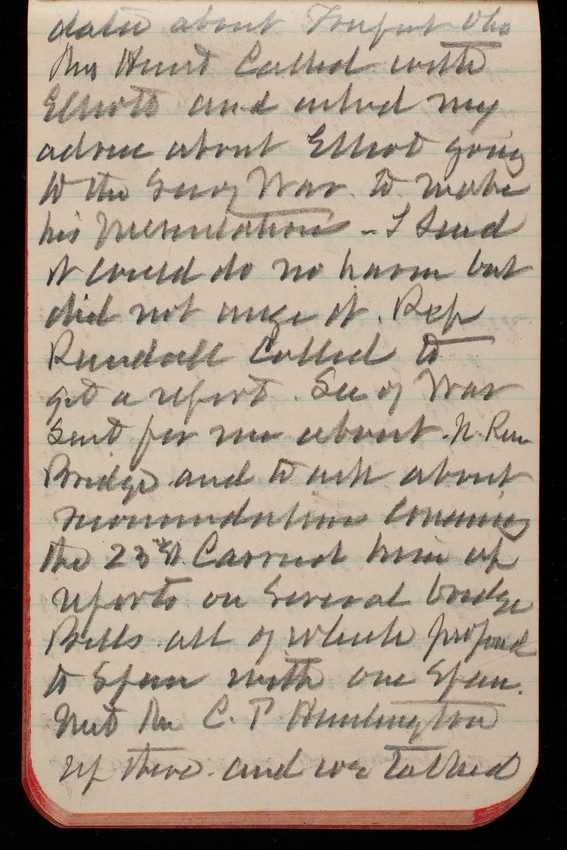 data about Freeport Ohio
Mrs Hunt Called with
Elliott and asked my
advice about Elliot going
to the Sec of War to make
his presentation - I said
it could do no harm but
did not urge it. Rep
Randall Called to
get a report. Sec of War
sent for me about N. River
Bridge and to ask about
recommendations Concerning
the 23rd. Carried him up
reports on Several bridge
Bills all of which proposed
to Span with one Span.
Met C. P. Huntington
up there and we talked